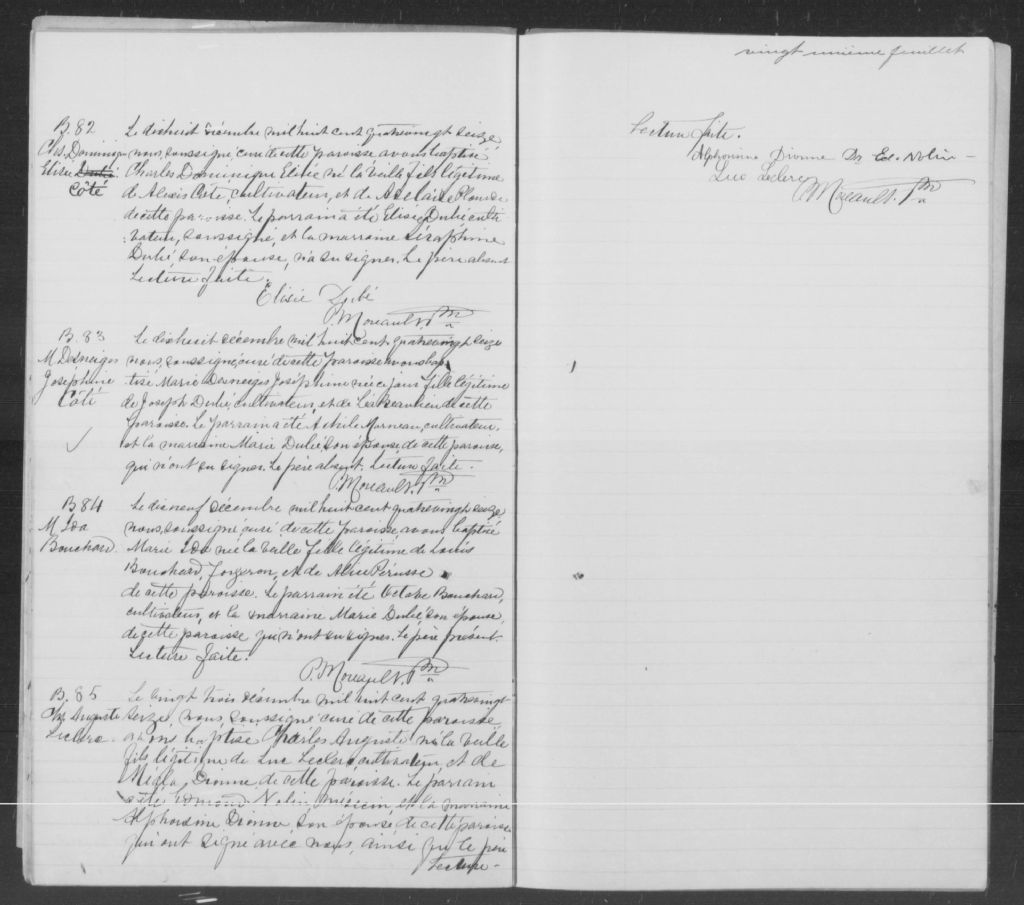 B. 82
Chs. Dominique
Elisée Dubé
Côté
Le dixhuit décembre mil huit cent quatrevingt seize,
nous, soussigné, curé de cette paroisse avons baptisé
Charles Dominique Elisée né la veille fils légitime
de Alexis Côté, cultivateur, et de Adelaide Plourde
de cette paroisse. Le parrain a été Elisée Dubé culti
vateur, soussigné, et la marraine Séraphine
Dubé, son épouse, n'a su signer. Le père absent
Lecture faite.
Elisée Dubé
P. Moreault, Ptre
B. 83
M. Desneiges
Joséphine
Côté
Le dixhuit décembre mil huit cent quatrevingt seize
nous, soussigné, curé de cette paroisse avons bap
tisé Marie Desneiges Joséphine née ce jour fille légitime
de Joseph Dubé, cultivateur, et de Léa Beaulieu de cette
paroisse. Le parrain a été Achile Morneau, cultivateur,
et la marraine Marie Dubé, son épouse, de cette paroisse,
qui n'ont su signer. Le père absent. Lecture faite.
P. Moreault, Ptre
B. 84
M. Ida
Bouchard.
Le dixneuf décembre mil huit cent quatrevingt seize
nous, soussigné, curé de cette paroisse, avons baptisé
Marie Ida née la veille fille légitime de Louis
Bouchard, forgeron, et de Alice Pérusse
de cette paroisse. Le parrain été Octave Bouchard,
cultivateur, et la marraine Marie Dubé son épouse,
de cette paroisse qui n'ont su signer. Le père présent.
Lecture faite.
P. Moreault, Ptre
B. 85
Chs. Auguste
Leclerc.
Le vingt trois décembre mil huit cent quatrevingt
seize, nous, soussigné curé de cette paroisse
avons baptisé Charles Auguste né la veille
fils légitime de Luc Leclerc, cultivateur, et de
Dionne de cette paroisse. Le parrain
a été Edmond Nolin, médecin et la marraine
Alphonsine Dionne, son épouse, de cette paroisse
qui ont signé avec nous, ainsi que le père
Lecture
vingt unième feuillet
Lecture faite.
Alphonsine Dionne Dr Ed. Nolin
Luc Leclerc
P. Moreault, Ptre